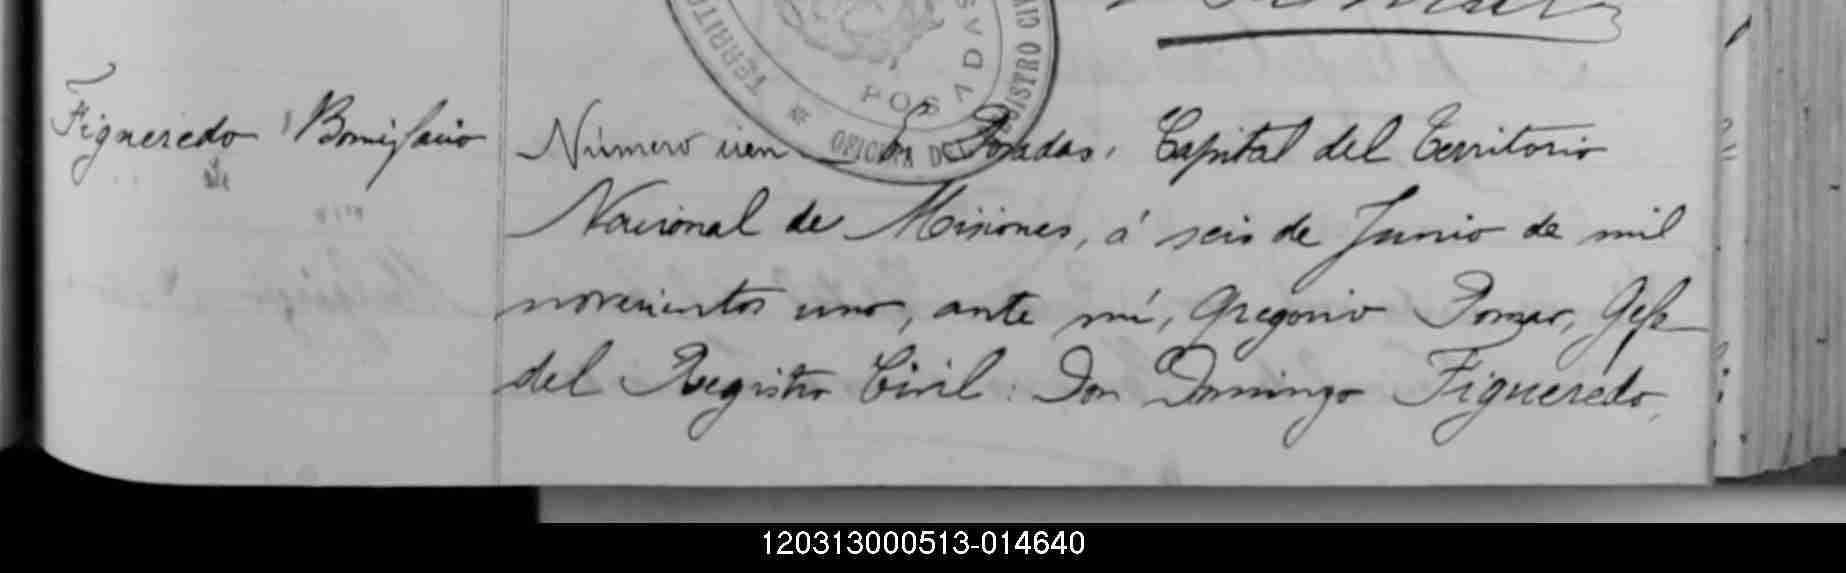 TERRITO
POSADAS
OFICINA DEL REGISTRO CIV
Figueredo Bonifacio
Número cien En Posadas, Capital del Territorio
Nacional de Misiones, á seis de Junio de mil
novecientos uno, ante mí, Gregorio Pomar, Gefe
del Registro Civil: Don Domingo Figueredo,
120313000513-014640